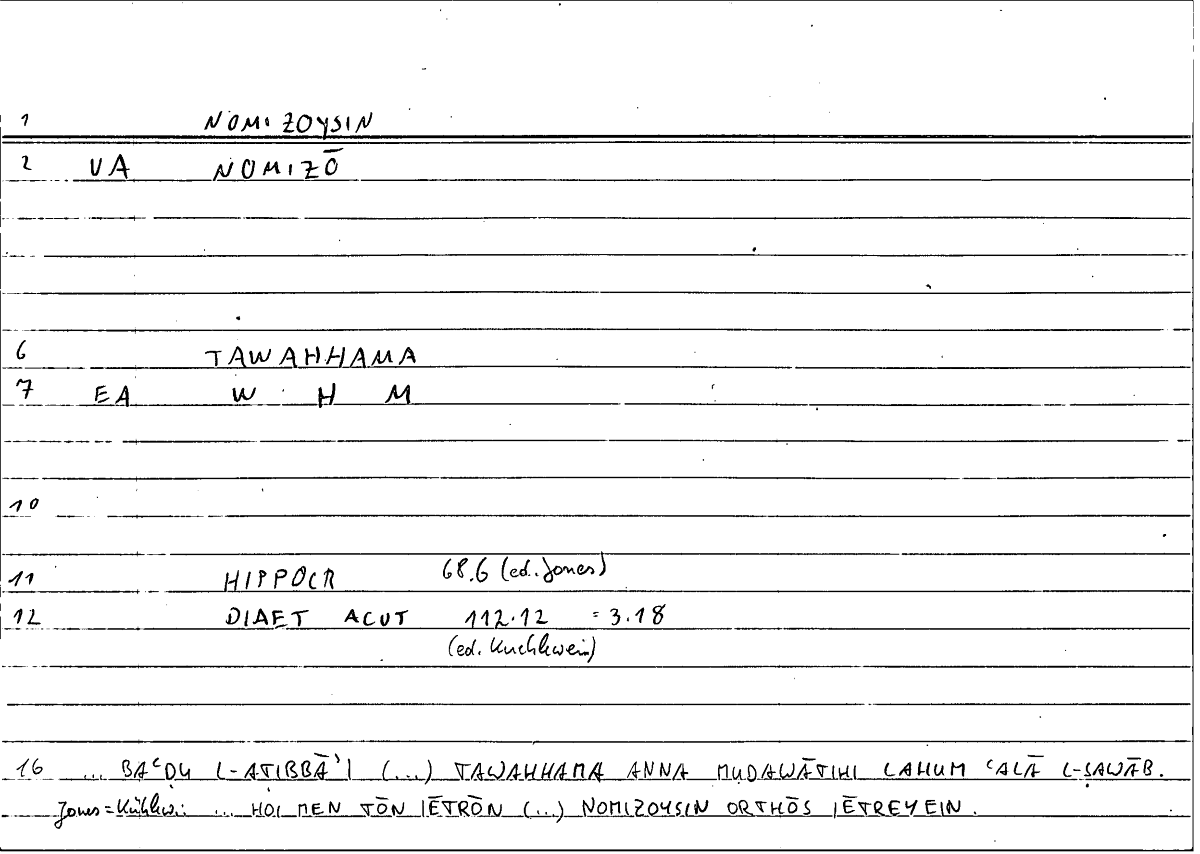 1 NOMIZOYSIN
2 VA NOMIZŌ
6 TAWAHHAMA
7 EA W H M
10
11 HIPPOCR 68.6 (ed. Jones)
12 DIAET ACUT 112.12 = 3.18
(ed. Kuehlwein)
16 ... BAʿDU L-AṬIBBĀʾI (...) TAWAHHAMA ANNA MUDAWĀTIHI LAHUM ʿALĀ L-ṢAWĀB.
Jones = Kühlw.: ... HOI MEN TŌN IĒTRŌN (...) NOMIZOYSIN ORTHŌS IĒTREYEIN.